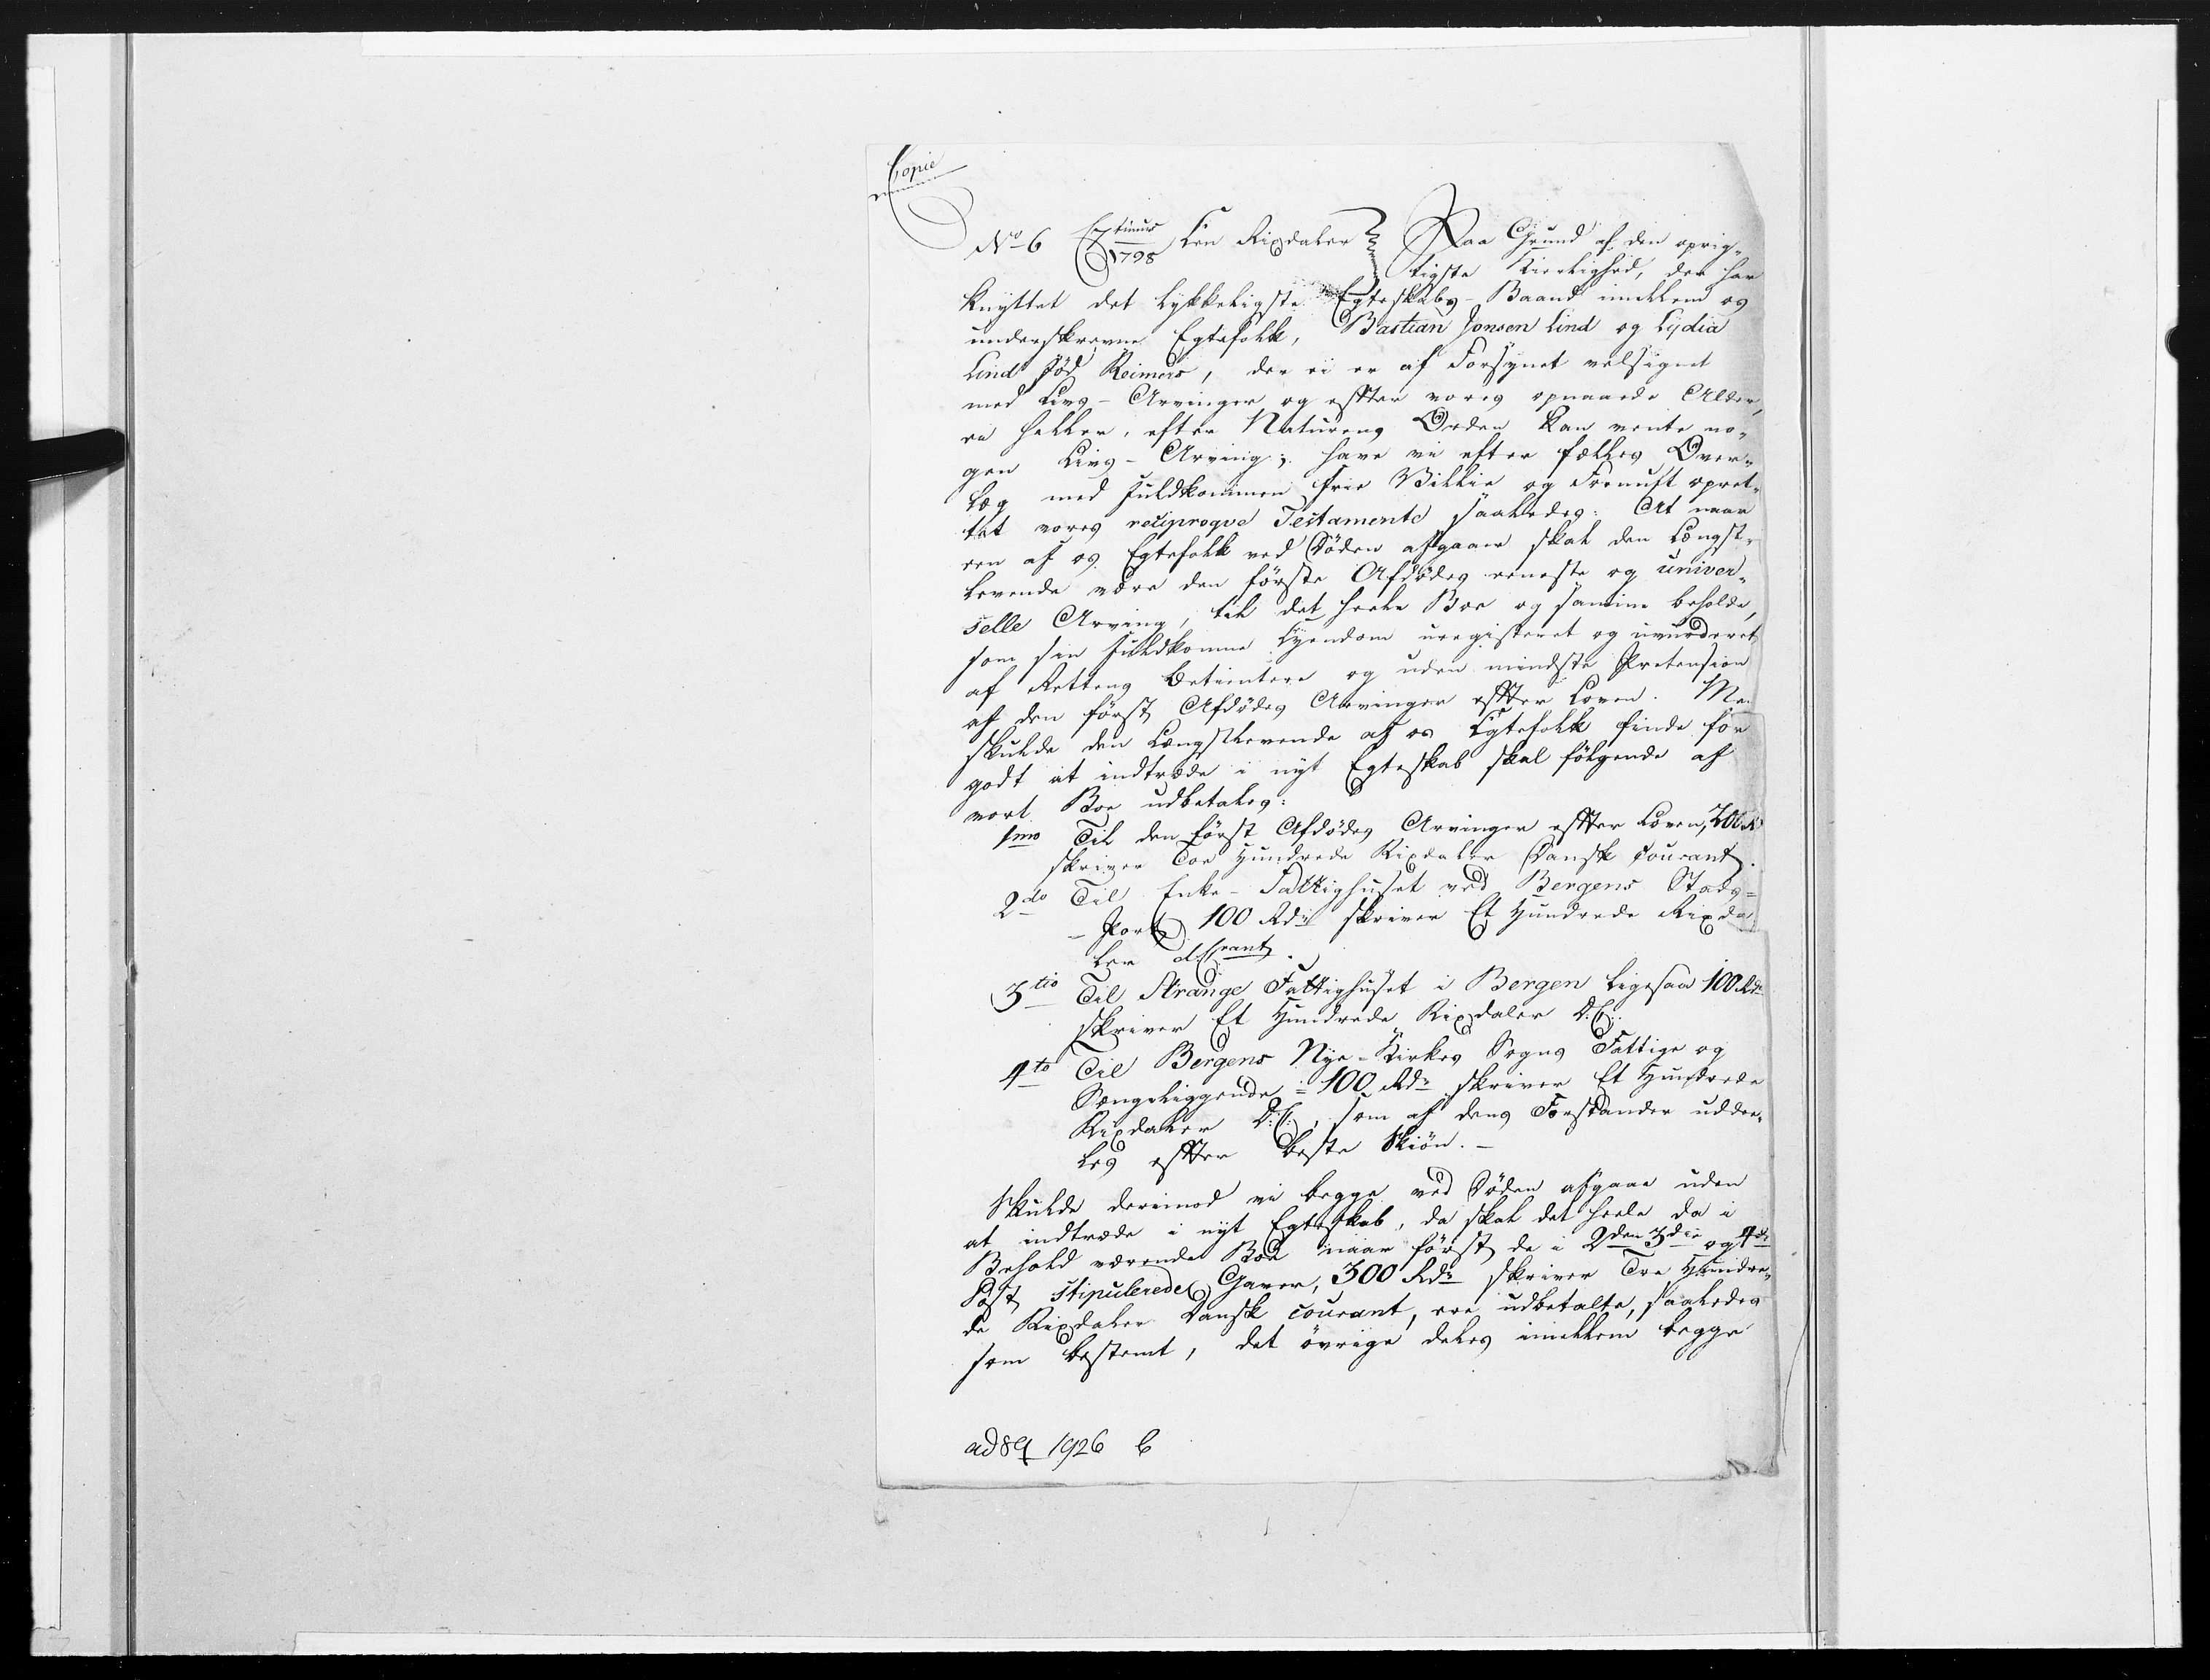 Copie
No 6 Extimus 1798 Een Rixdaler Paa Grund af den oprig-
tigste Kierlighed, der har
knyttet det lykkeligste Egteskabs-Baand imellem os
underskrevne Egtefolk, Bastian Jonsen Lind og Lydia
Lind fød Reimers, der ei er af Forsynet velsignet
med Livs-Arvinger og effter vores opnaaede Alder,
ei heller, efter Naturens Orden kan vente no-
gen Livs-Arving; have vi efter fælles Over-
læg med fuldkommen frie Villie og Fornuft opret-
tet vores reciproqve Testamente saaledes: At naar
een af os Egtefolk ved Døden afgaaer skal den Længst-
levende være den første Afdødes eeneste og univer-
selle Arving, til det heele Boe og samme beholde,
som sin fuldkomne Eyendom uregisteret og uvurderet
af Rettens Betientere og uden mindste Pretension
af den først Afdødes Arvinger effter Loven. Men
skulde den Længstlevende af os Egtefolk finde for
godt at indtræde i nyt Egteskab skal følgende af
vort Boe udbetales:
1mo Til den først Afdødes Arvinger effter Loven, 200 Rd
skriver Toe Hundrede Rixdaler Dansk Courant.
2do Til Enke-Fattighuset ved Bergens Stads-
-Port 100 Rdr skriver Et Hundrede Rixda
ler d. Courant.
3tio Til Strange Fattighuset i Bergen ligesaa 100 Rdr
skriver Et Hundrede Rixdaler D: C:.
4to Til Bergens Nye-Kirkes Sogns Fattige og
Sængeliggende = 100 Rdr skriver Et Hundrede
Rixdaler D: C:, som af dens Forstander uddee-
les effter beste Skiøn. -
Skulde derimod vi begge ved Døden afgaae uden
at indtræde i nyt Egteskab, da skal det heele da i
Behold værende Boe naar først de i 2den 3die og 4de
Post stipulerede Gaver, 300 Rdr skriver Tre Hundre-
de Rixdaler Dansk Courant, ere udbetalte, saaledes
som bestemt, det øvrige deles imellem begge
ad 89 1926 b